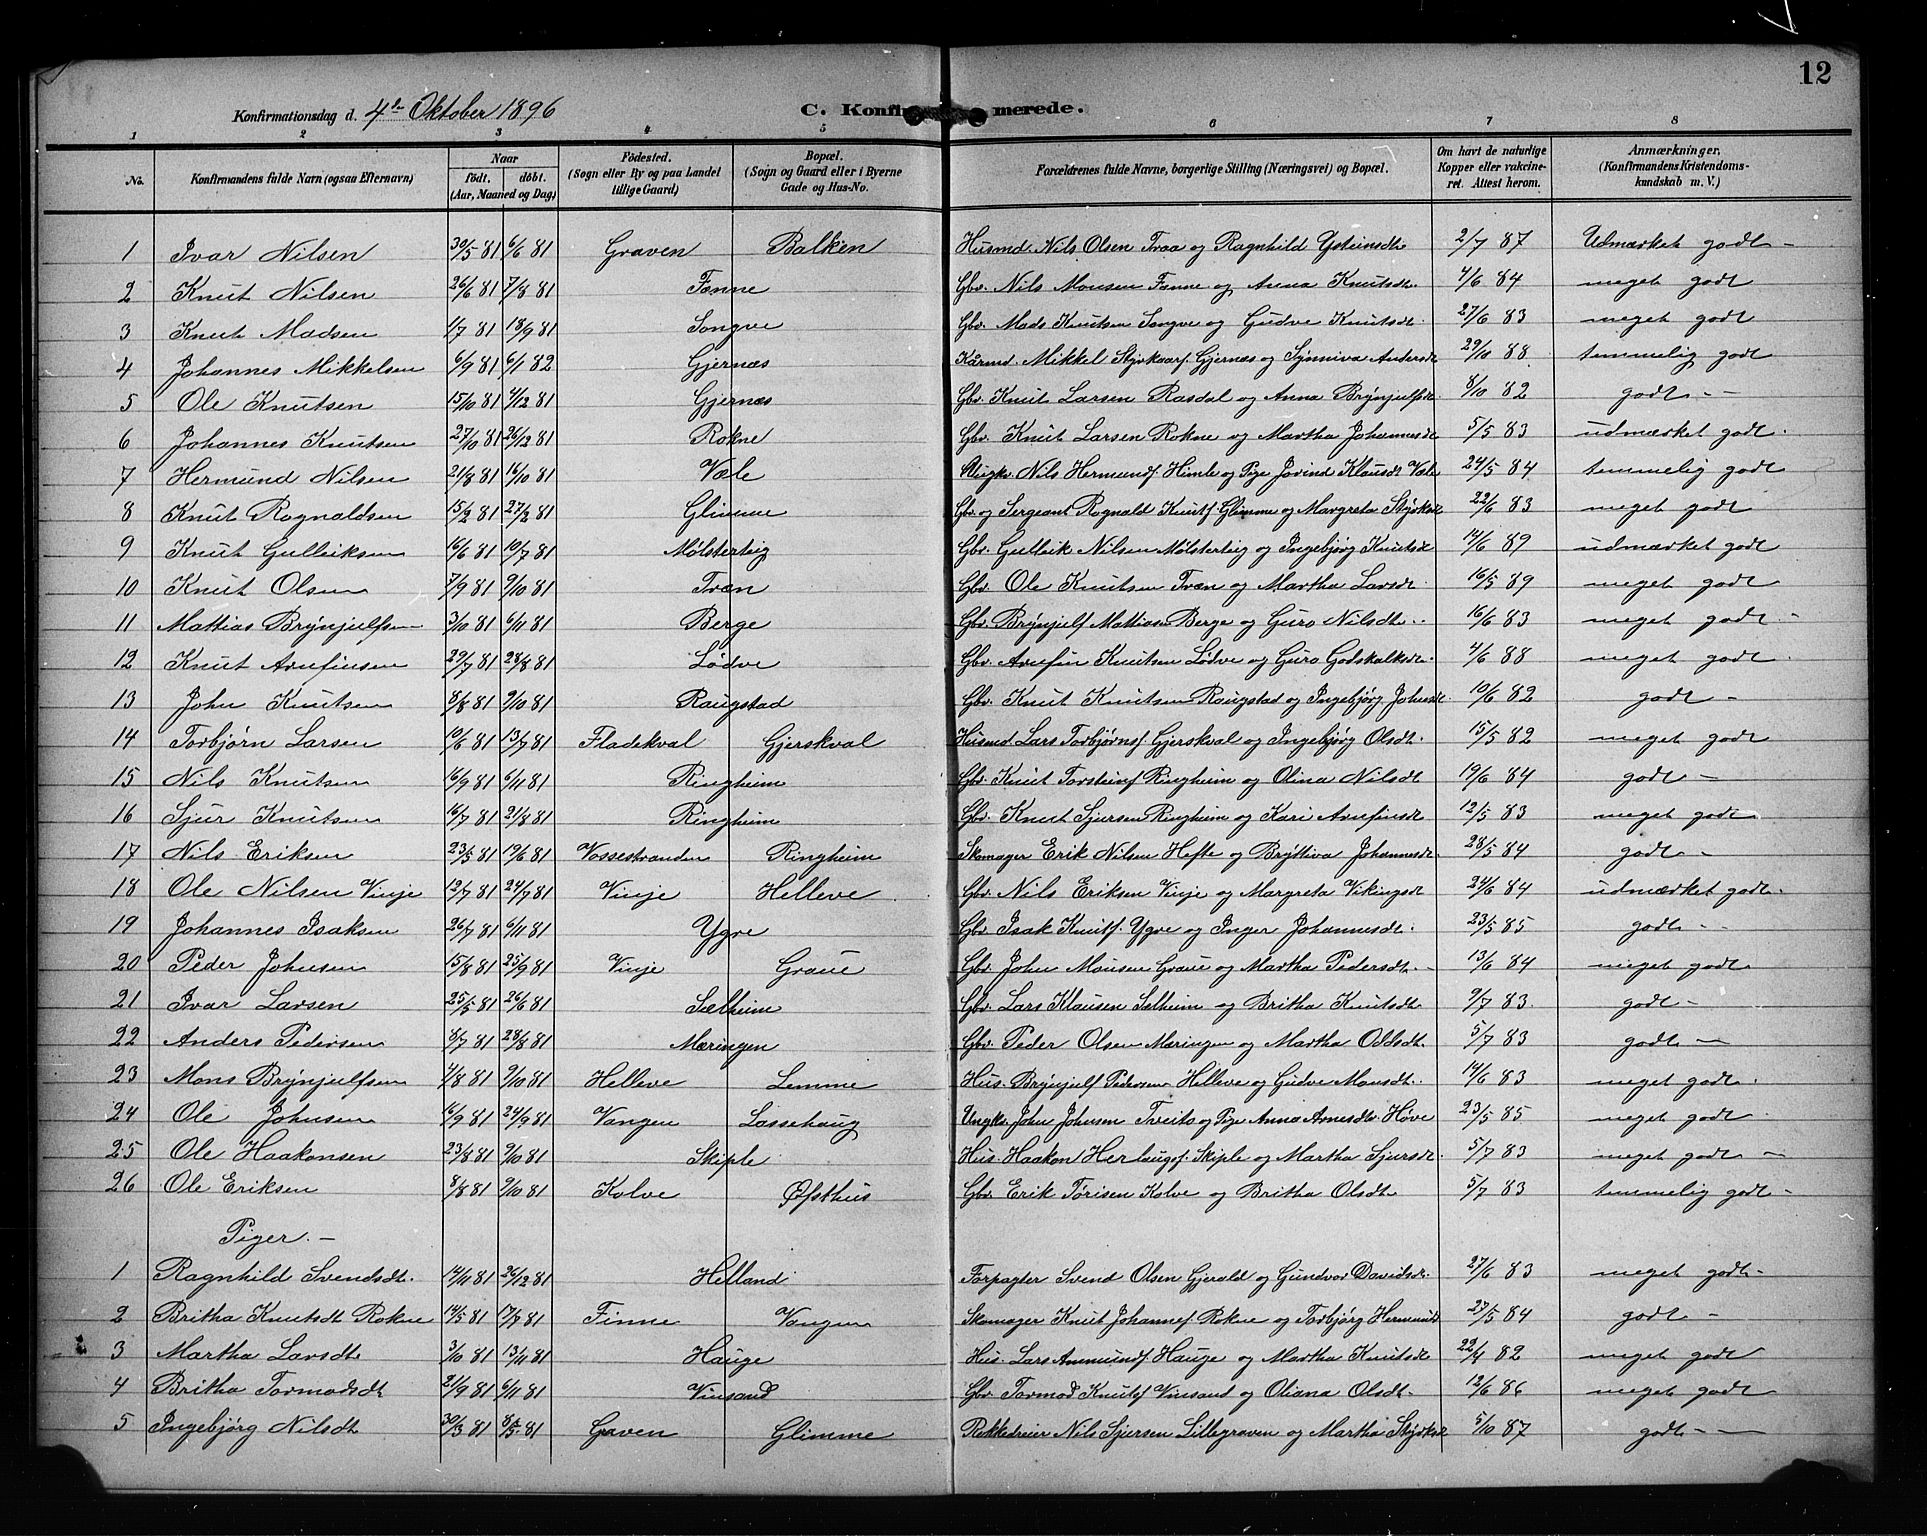 12
Konfirmationsdag d. 4de Oktober 1896 C. Konfirmerede.
1 2 3 4 5 6 7 8
No. Konfirmandens fulde Navn (ogsaa Efternavn) Naar födt. döbt. (Aar, Maaned og Dag) Födested. (Sogn eller By og paa Landet tillige Gaard) Bopæl. (Sogn og Gaard eller i Byerne Gade og Hus-No. Forældrenes fulde Navne, borgerlige Stilling (Næringsvei) og Bopæl. Om havt de naturlige Kopper eller vakcineret. Attest herom. Anmærkninger. (Konfirmandens Kristendomskundskab m. V.)
1 Ivar Nilsen 30/5 81 6/6 81 Graven Balken Husmd. Nils Olsen Traa og Ragnhild Ysteinsdt. 2/7 87 Udmærket godt -
2 Knut Nilsen 26/6 81 7/8 81 Fenne Gbr. Nils Monsen Fenne og Anna Knutsdt. 4/6 84 meget godt
3 Knut Madsen 1/7 81 18/9 81 Songve Gbr. Mads Knutsen Songve og Gudve Knutsdt. 27/6 83 meget godt
4 Johannes Mikkelsen 6/9 81 6/1 82 Gjernæs Kårmd. Mikkel Styrkaarf. Gjernæs og Synniva Andersdt 29/10 88 temmelig godt
5 Ole Knutsen 15/10 81 4/12 81 Gjernæs Gbr. Knut Larsen Rasdal og Anna Brynjulfsdt. 8/10 82 godt - -
6 Johannes Knutsen 27/10 81 26/12 81 Rokne Gbr. Knut Larsen Rokne og Martha Johannesdt 5/5 83 udmærket godt.
7 Hermund Nilsen 21/8 81 16/10 81 Væle Ungkr. Nils Hermundf. Himle og Pige Jorind Klausdt Væle 24/5 84 temmelig godt
8 Knut Rognaldsen 15/2 81 27/2 81 Glimme Gbr. og Sergeant Rognald Knutf. Glimme og Margreta Styrksdt 22/6 83 meget godt
9 Knut Gulleiksen 16/6 81 10/7 81 Mølsterteig Gbr. Gulleik Nilsen Mølsterteig og Ingebjørg Knutsdt 14/6 89 udmærket godt
10 Knut Olsen 7/9 81 9/10 81 Træn Gbr. Ole Knutsen Træn og Martha Larsdt. 16/5 89 meget godt
11 Mattias Brynjulfsen 3/10 81 6/11 81 Berge Gbr. Brynjulf Mattiasen Berge og Guro Nilsdt. 16/6 83 meget godt -
12 Knut Arnfinsen 29/7 81 28/8 81 Lødve Gbr. Arnfin Knutsen Lødve og Guro Godskalksdt. 4/6 88 meget godt
13 John Knutsen 8/8 81 9/10 81 Raugstad Gbr. Knut Knutsen Raugstad og Ingebjørg Johnsdt 10/6 82 godt -
14 Torbjørn Larsen 10/6 81 13/7 81 Fladekval Gjerskval Husmd. Lars Torbjørnf. Gjerskval og Ingebjørg Olsdt. 15/5 82 meget godt
15 Nils Knutsen 16/9 81 6/11 81 Ringheim Gbr. Knut Torsteinf Ringheim og Olina Nilsdt 19/6 84 godt -
16 Sjur Knutsen 16/7 81 21/8 81 Ringheim Gbr. Knut Sjursen Ringheim og Kari Arnfinsdt 12/5 83 meget godt
17 Nils Eriksen 23/5 81 19/6 81 Vossestranden Ringheim Skomager Erik Nilsen Hefte og Bryttiva Johannesdt. 28/5 84 godt -
18 Ole Nilsen Vinje 12/7 81 24/7 81 Vinje Helleve Gbr. Nils Eriksen Vinje og Margreta Vikingsdt 24/6 84 udmærket godt.
19 Johannes Isaksen 26/7 81 6/11 81 Ygre Gbr. Isak Knutf. Ygre og Inger Johannesdt. 23/5 85 godt - -
20 Peder Johnsen 15/8 81 25/9 81 Vinje Graue Gbr. John Monsen Graue og Martha Pedersdt. - 13/6 84 meget godt.
21 Ivar Larsen 25/5 81 26/6 81 Sælheim Gbr. Lars Klausen Sælheim og Britha Knutsdt 9/7 83. godt -
22 Anders Pedersen 8/7 81 28/8 81 Mæringen Gbr. Peder Olsen Mæringen og Martha Oddsdt. 5/7 83 godt -
23 Mons Brynjulfsen 4/8 81 9/10 81 Helleve Lemme Hus. Brynjulf Pedersen Helleve og Gudve Monsdt. 14/6 83 meget godt.
24 Ole Johnsen 16/9 81 24/9 81 Vangen Lassehaug Ungkr. John Johnsen Tveito og Pige Anna Arnesdtr Høve 23/5 85 meget godt
25 Ole Haakonsen 23/8 81 9/10 81 Skiple Hus. Haakon Herlaugf. Skiple og Martha Sjursdt. 5/7 83 meget godt -
26 Ole Eriksen 8/8 81 9/10 81 Kolve Øfsthus Gbr. Erik Torisen Kolve og Britha Olsdt. 5/7 83 temmelig godt -
Piger. -
1 Ragnhild Svendsdt. 14/11 81 26/12 81 Helland Forpagter Svend Olsen Gjerald og Gundvor Davidsdt. 27/6 83 meget godt -
2 Britha Knutsdt Rokne 14/5 81 17/7 81 Finne Vangen Skomager Knut Johannef. Rokne og Torbjørg Hermundt 27/5 84 godt -
3 Martha Larsdt 3/10 81 13/11 81 Hauge Hus. Lars Ammundf Hauge og Martha Knutsdt 22/4 82 meget godt
4 Britha Tormodsdt 21/9 81 6/11 81 Vinsand Gbr Tormod Knutsf Vinsand og Oliana Olsdt. 12/6 86 meget godt
5 Ingebjørg Nilsdt 30/3 81 8/5 81 Graven Glimme Rokkedreier Nils Sjursen Lillegraven og Martha Styrksdt 5/10 87 godt - -